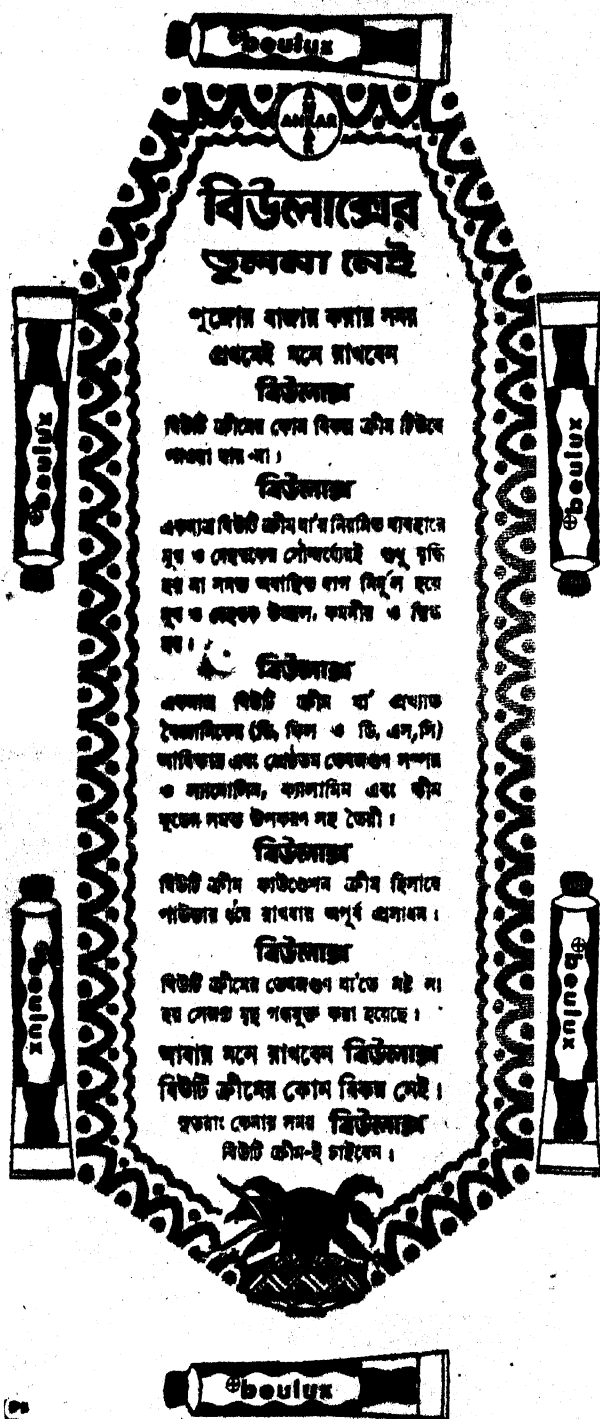 beulux
ANKAR
বিউলাক্সের
তুলনা নেই
পূজোর বাজার করার সময়
প্রথমেই মনে রাখবেন
বিউলাক্স
বিউটি ক্রীমের কোন বিকল্প ক্রীম টিউবে
পাওয়া যায় না।
বিউলাক্স
একমাত্র বিউটি ক্রীম যা'র নিয়মিত ব্যবহারে
মুখ ও দেহত্বকের সৌন্দর্য্যেরই শুধু বৃদ্ধি
হয় না সমস্ত অবাঞ্ছিত দাগ নির্মূল হয়ে
মুখ ও দেহত্বক উজ্জল, কমনীয় ও স্নিগ্ধ
হয়।
বিউলাক্স
একমাত্র বিউটি ক্রীম যা' প্রখ্যাত
বৈজ্ঞানিকের (ডি, ফিল ও ডি, এস,সি)
আবিষ্কার এবং শ্রেষ্ঠতম ভেষজগুণ সম্পন্ন
ও ল্যানোলিন, ক্যালামিন এবং স্কীন
ফুডের সমস্ত উপকরণ সহ তৈরী।
বিউলাক্স
বিউটি ক্রীম ফাউণ্ডেশন ক্রীম হিসাবে
পাউডার ধরে রাখবার অপূর্ব প্রসাধন।
বিউলাক্স
বিউটি ক্রীমের ভেষজগুণ যা'তে নষ্ট না
হয় সেজন্য মৃদু গন্ধযুক্ত করা হয়েছে।
আবার মনে রাখবেন বিউলাক্স
বিউটি ক্রীমের কোন বিকল্প নেই।
সুতরাং কেনার সময় বিউলাক্স
বিউটি ক্রীম-ই চাইবেন।
beulux
beulux
beulux
beulux
beulux